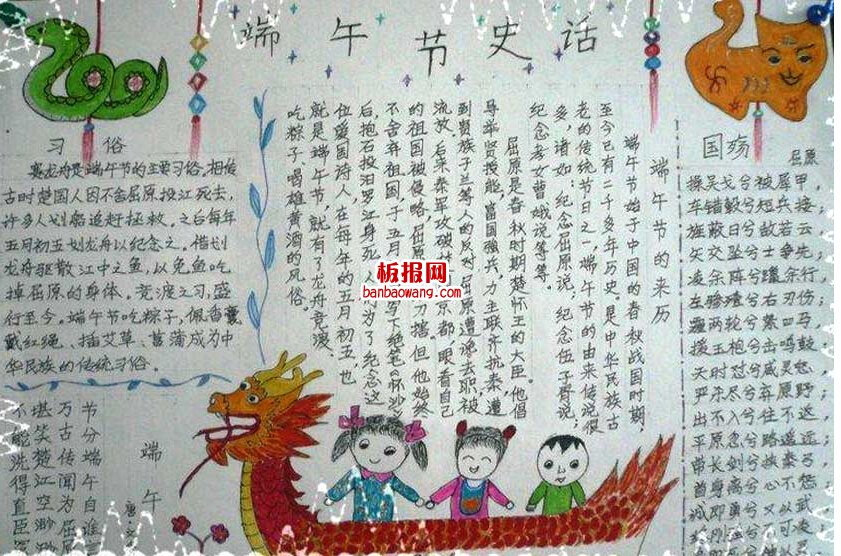 端午节史话
习俗
赛龙舟是端午节的主要习俗。相传
古时楚国人因不舍屈原投江死去,
许多人划船追赶拯救。之后每年
五月初五划龙舟以纪念之。借划
龙舟驱散江中之鱼,以免鱼吃
掉屈原的身体。竞渡之习,盛
行至今。端午节吃粽子,佩香囊
戴红绳、插艾草、菖蒲成为中
华民族的传统习俗。
端午节的来历
端午节始于中国的春秋战国时期
至今已有二千多年历史,是中华民族古
老的传统节日之一,端午节的由来传说很
多,诸如:纪念屈原说,纪念伍子胥说,
纪念孝女曹娥说等等。
屈原是春秋时期楚怀王的大臣。他倡
导举贤授能,富国强兵,力主联齐抗秦,遭
到贵族子兰等人的反对,屈原遭谗去职,被
流放,后来秦军攻破京都,眼看自己
的祖国被侵略,屈原刀搐。但他始终
不舍弃祖国,于五月写下绝笔《怀沙》
后,抱石投汨罗江身死,人们为了纪念这
位爱国诗人,在每年的五月初五,也
就是端午节,就有了龙舟竞渡、
吃粽子喝雄黄酒的风俗。
板报网
banbaowang.com
国殇
屈原
操吴戈兮被犀甲,
车错毂兮短兵接;
旌蔽日兮敌若云,
矢交坠兮士争先;
凌余阵兮躐余行,
左骖殪兮右刃伤;
霾两轮兮絷四马,
援玉枹兮击鸣鼓;
天时怼兮威灵怒,
严杀尽兮弃原野;
出不入兮往不返,
平原忽兮路遥远;
带长剑兮挟秦弓,
首身离兮心不惩;
诚既勇兮又以武
端午
唐
节分端午自谁
万古传闻为屈
堪笑楚江空渺
不能洗得直臣